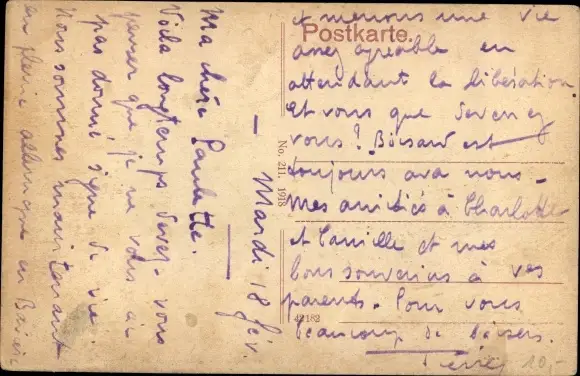 Mardi 18 fév.
Ma chère Paulette.
Voilà longtemps devez-vous
penser que je ne vous ai
pas donné signe de vie.
Nous sommes maintenant
en pleine allemagne en
Postkarte.
et menons une vie
assez agréable en
attendant la libération.
Et vous que devenez
vous? Boisard est
toujours avec nous.
Mes amitiés à Charlotte
et Camille et mes
bons souvenirs à vos
parents. Pour vous
beaucoup de baisers.
Pierre
No. 211. 1918
42182
10,-